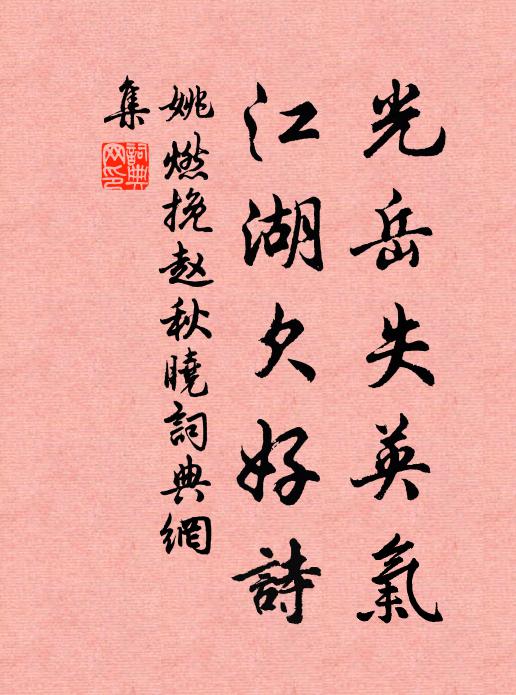 光岳失英氣
江湖欠好詩
姚燃挽赵秋曉詞典網
集
詞典
网印